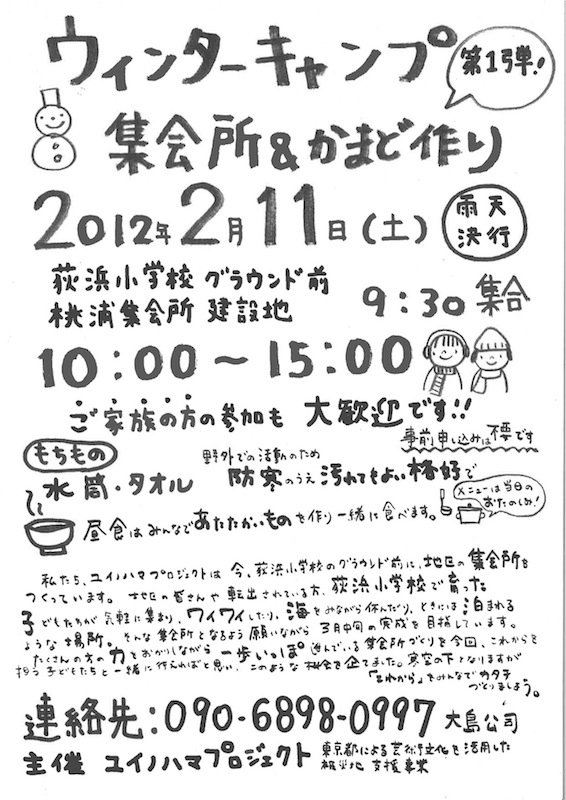 ウィンターキャンプ
第1弾!
集会所&かまど作り
2012年2月11日(土)
雨天決行
荻浜小学校 グラウンド前
桃浦集会所 建設地
9:30 集合
10:00〜15:00
ご家族の方の参加も 大歓迎です!!
事前申し込みは不要です
もちもの
水筒・タオル
野外での活動のため
防寒のうえ汚れてもよい格好で
昼食はみんなであたたかいものを作り一緒に食べます。
メニューは当日のおたのしみ!
私たち、ユイノハマプロジェクトは今、荻浜小学校のグラウンド前に、地区の集会所を
つくっています。地区の皆さんや転出されている方、荻浜小学校で育った
子どもたちが気軽に集まり、ワイワイしたり、海をみながら休んだり、ときには泊まれる
ような場所。そんな集会所となるよう願いながら3月中旬の完成を目指しています。
たくさんの方の力をおかりしながら一歩いっぽ進んでいる集会所づくりを今回、これからを
担う子どもたちと一緒に行えればと思い、このような機会を企てました。寒空の下となりますが
「これから」をみんなでカタチ
づくりましょう。
連絡先:090-6898-0997 大島公司
主催 ユイノハマプロジェクト
東京都による芸術文化を活用した
被災地支援事業